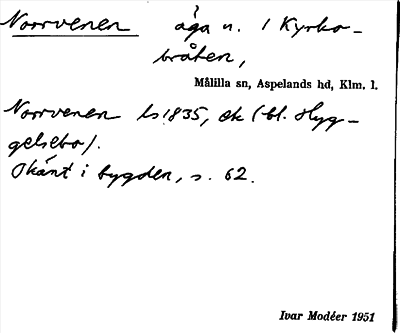 Norrvenen åga n. / Kyrko-
bråten,
Målilla sn, Aspelands hd, Klm. l.
Norrvenen ls 1835, ek (bl. Hyg-
gelsebo).
Okänt i bygden, s. 62.
Ivar Modéer 1951